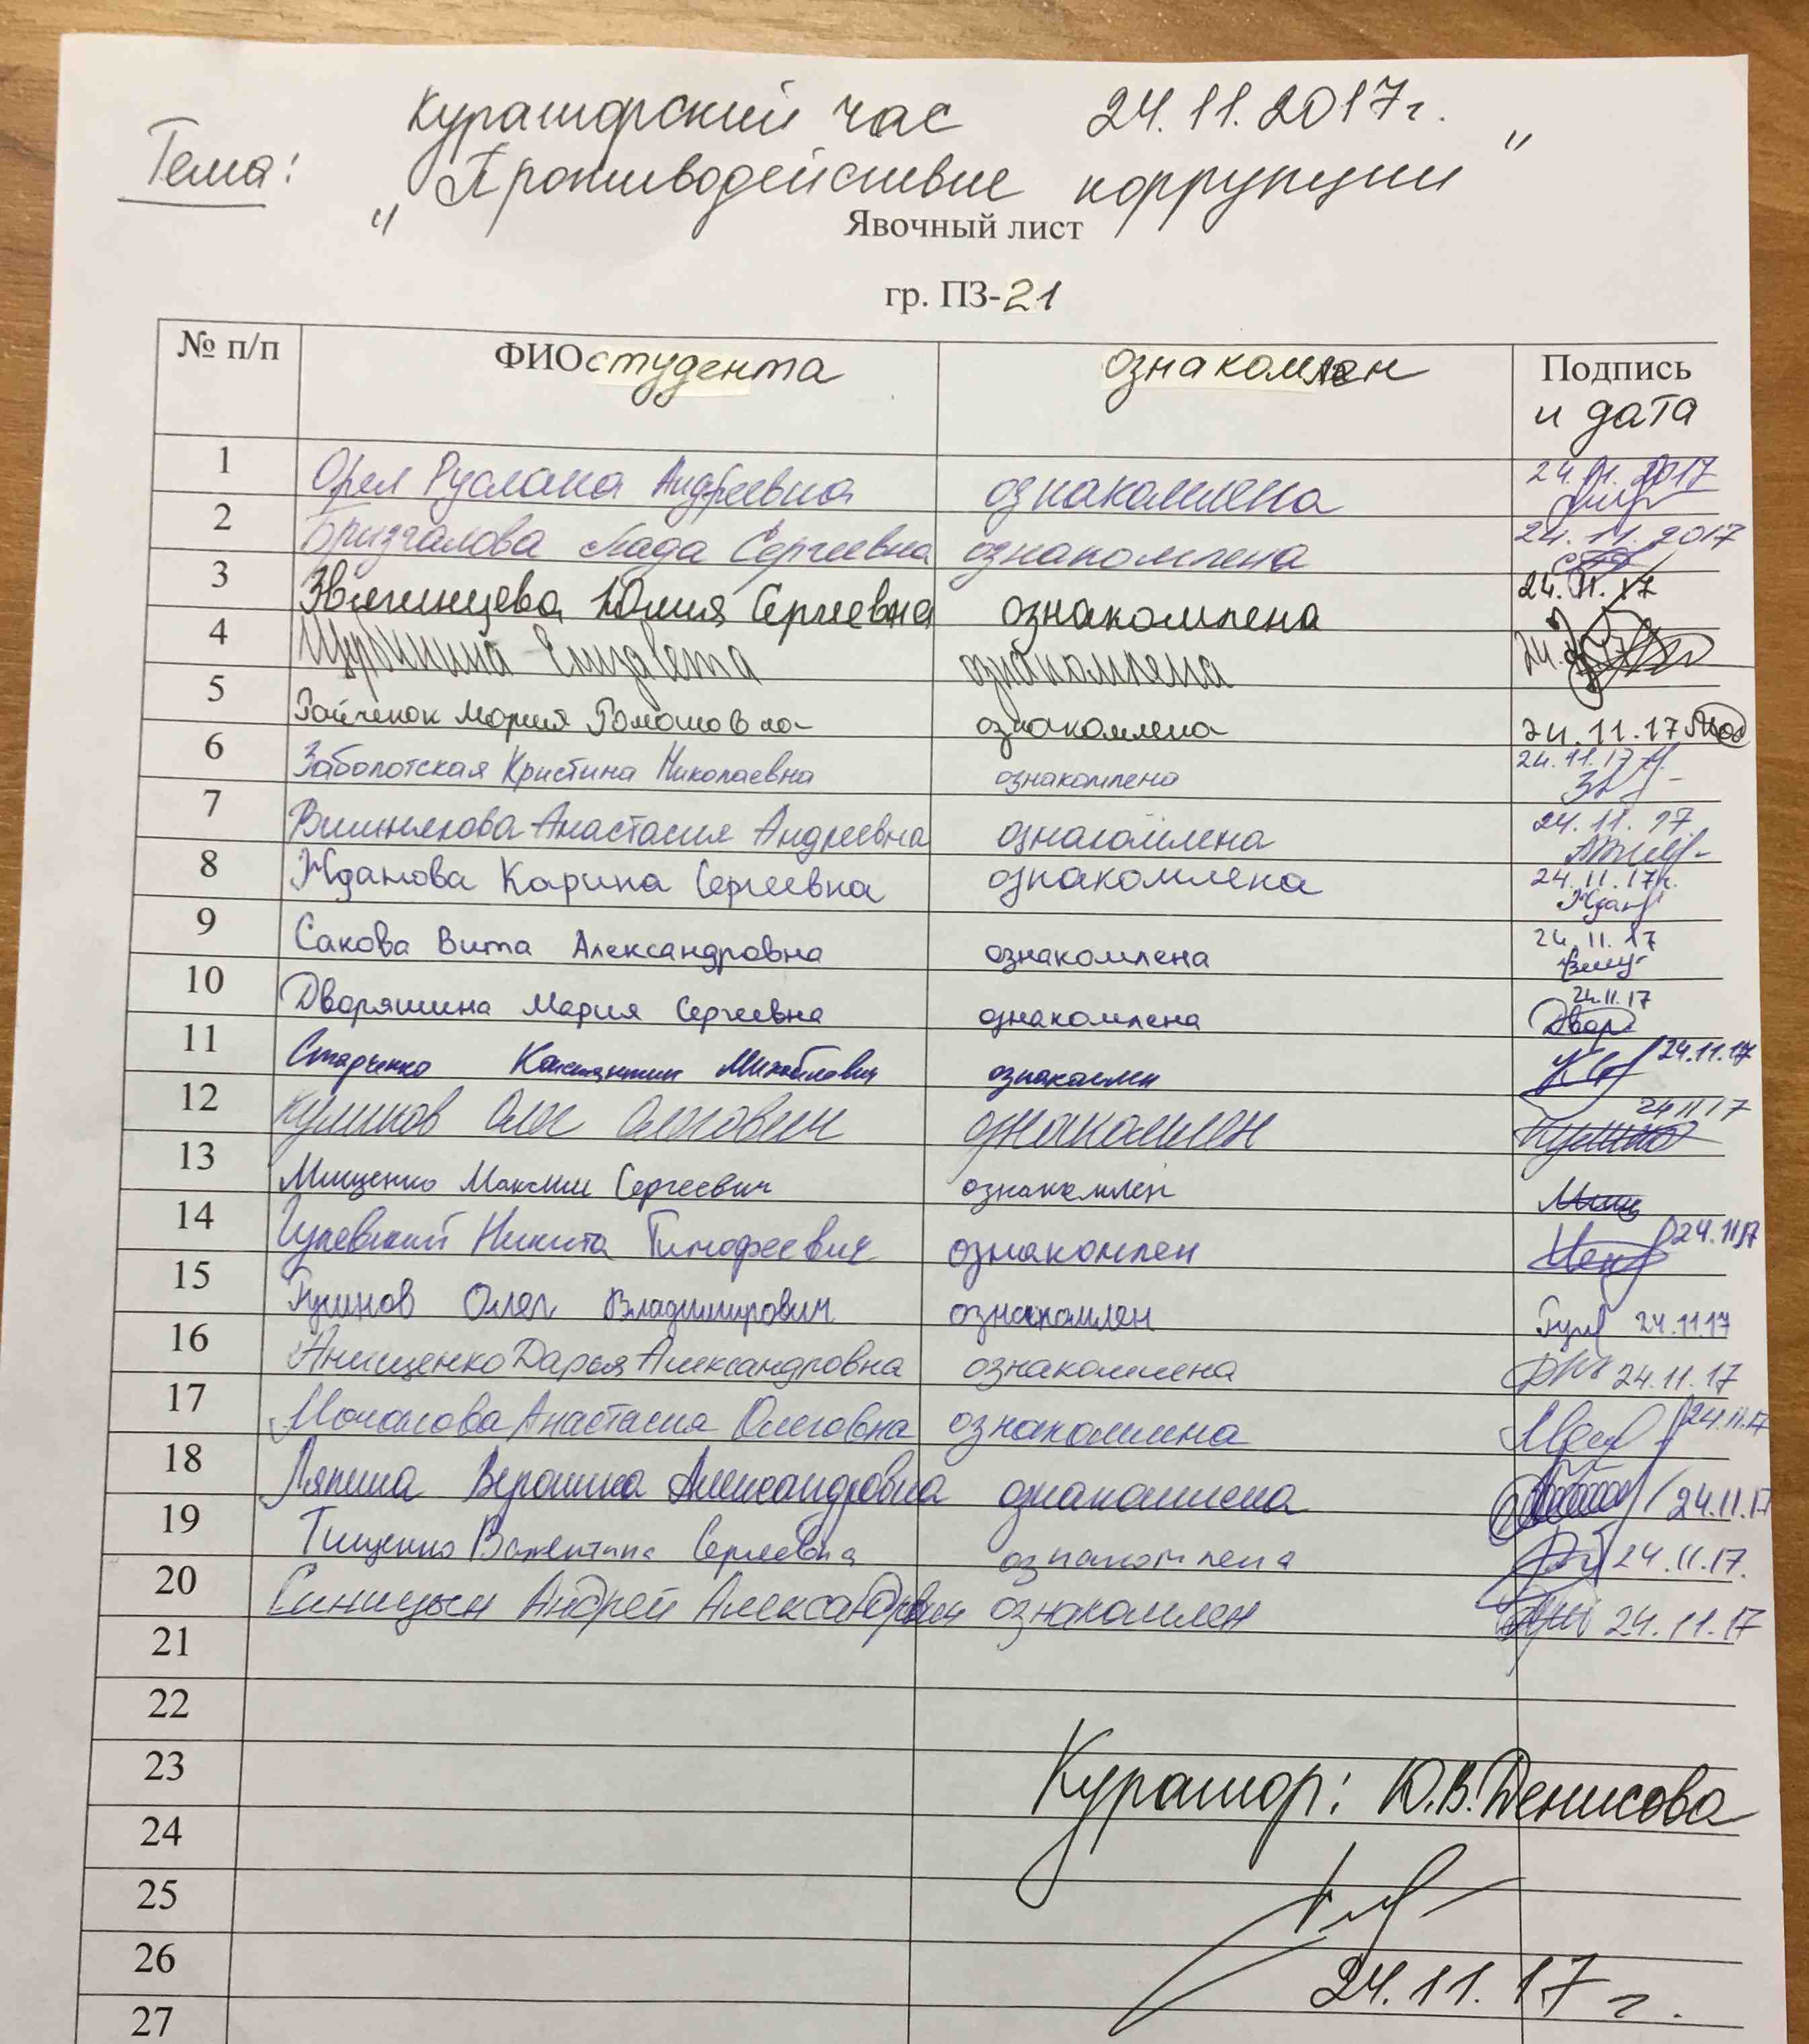 Кураторский час 24.11.2017г.
Тема: "Противодействие коррупции"
Явочный лист
гр. ПЗ-21
№ п/п ФИО студента ознакомлен Подпись и дата
1 Орел Руслана Андреевна ознакомлена 24.11.2017
2 Бризгалова Лада Сергеевна ознакомлена 24.11.2017
3 Звягинцева Юлия Сергеевна ознакомлена 24.11.17
4 Елизавета ознакомлена 24.
5 Мария Романовна ознакомлена 24.11.17
6 Заболотская Кристина Николаевна ознакомлено 24.11.17
7 Вишнякова Анастасия Андреевна ознакомлена 24.11.17
8 Жданова Карина Сергеевна ознакомлена 24.11.17г.
9 Сакова Вита Александровна ознакомлена 24.11.17
10 Дворяшина Мария Сергеевна ознакомлена 24.11.17 Двор
11 Старченко Константин Михайлович ознакомлен 24.11.17
12 Куликов Олег Олегович ознакомлен 24 11 17
13 Мищенко Максим Сергеевич ознакомлен
14 Никита Тимофеевич ознакомлен 24.11.17
15 Олег Владимирович ознакомлен 24.11.17
16 Анищенко Дарья Александровна ознакомлена 24.11.17
17 Анастасия Олеговна ознакомлена 24.11.17
18 Ляпина Вероника Александровна ознакомлена 24.11.17
19 Тищенко Валентина Сергеевна ознакомлена 24.11.17.
20 Синицын Андрей Александрович ознакомлен 24.11.17
21
22
23
Куратор: Ю.В. Денисова
24
25
26
24.11.17г.
27